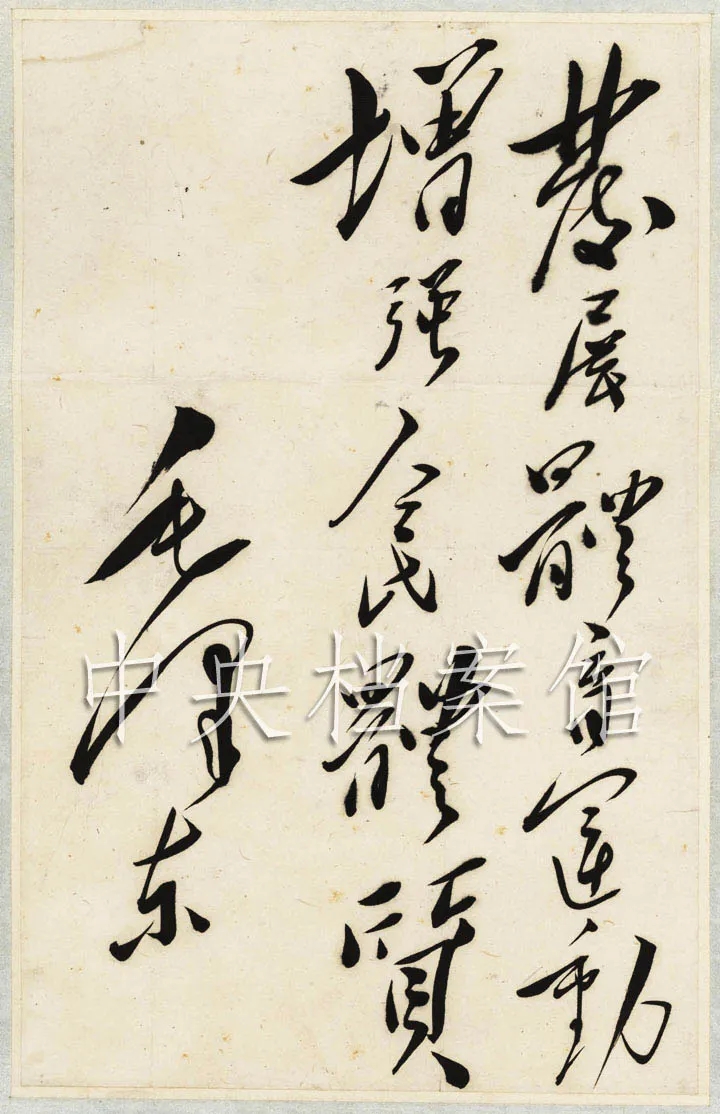 發展體育運動
增强人民體質
毛澤东
中央档案馆